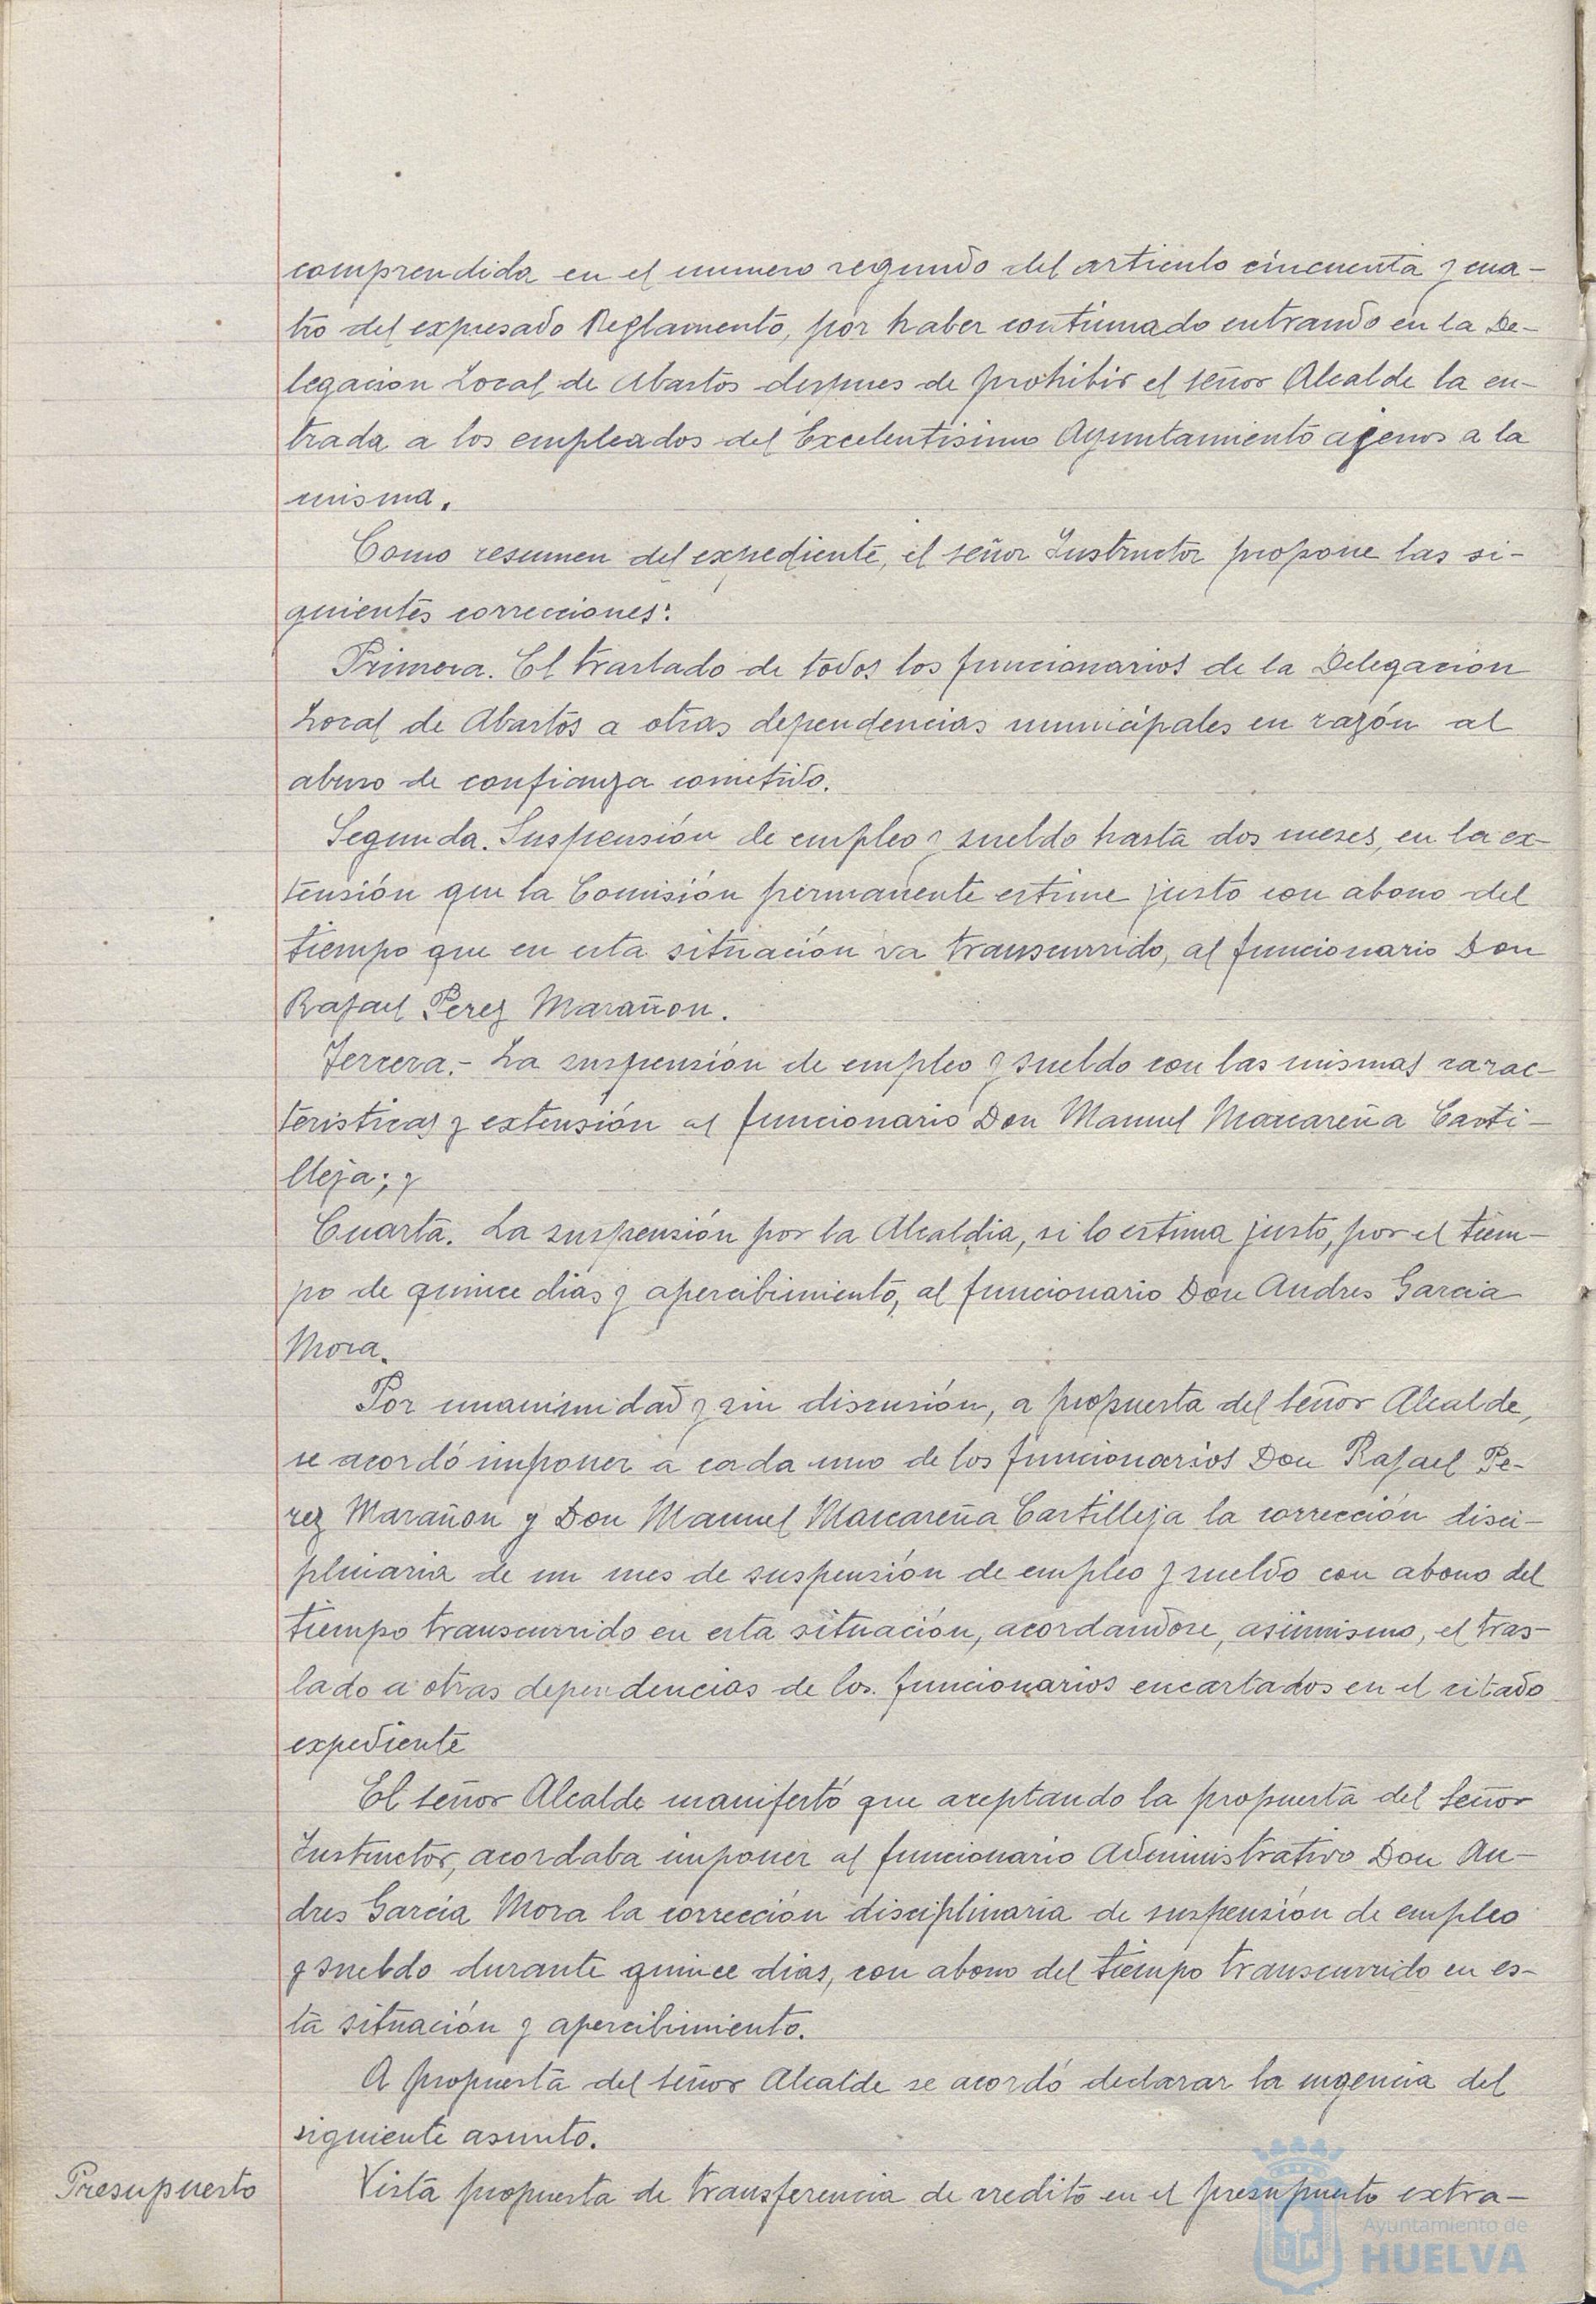 comprendida en el numero segundo del articulo cincuenta y cua-
tro del expresado Reglamento, por haber continuado entrando en la De-
legacion Local de Abastos despues de prohibir el señor Alcalde la en-
trada a los empleados del Excelentisimo Ayuntamiento agenos a la
misma.
Como resumen del expediente, el señor Instructor propone las si-
guientes correcciones:
Primera. El traslado de todos los funcionarios de la Delegacion
Local de Abastos a otras dependencias municipales en razón al
abuso de confianza cometido.
Segunda. Suspensión de empleo y sueldo hasta dos meses, en la ex-
tensión que la Comisión permanente estime justo con abono del
tiempo que en esta situación va transcurrido, al funcionario Don
Rafael Perez Marañon.
Tercera.- La suspensión de empleo y sueldo con las mismas carac-
teristicas y extensión al funcionario Don Manuel Mascareña Casti-
lleja; y
Cuarta. La suspensión por la Alcaldia, si lo estima justo, por el tiem-
po de quince dias y apercibimiento, al funcionario Don Andres Garcia
Mora.
Por unanimidad y sin discusión, a propuesta del señor Alcalde,
se acordó imponer a cada uno de los funcionarios Don Rafael Pe-
rez Marañon y Don Manuel Mascareña Castilleja la corrección disci-
plinaria de un mes de suspensión de empleo y sueldo con abono del
tiempo transcurrido en esta situación, acordandose, asimismo, el tras-
lado a otras dependencias de los funcionarios encartados en el citado
expediente
El señor Alcalde manifestó que aceptando la propuesta del señor
Instructor, acordaba imponer al funcionario Administrativo Don An-
dres García Mora la corrección disciplinaria de suspensión de empleo
y sueldo durante quince dias, con abono del tiempo transcurrido en es-
ta situación y apercibimiento.
A propuesta del señor Alcalde se acordó declarar la urgencia del
siguiente asunto.
Presupuesto
Vista propuesta de transferencia de credito en el presupuesto extra-
Ayuntamiento de
HUELVA